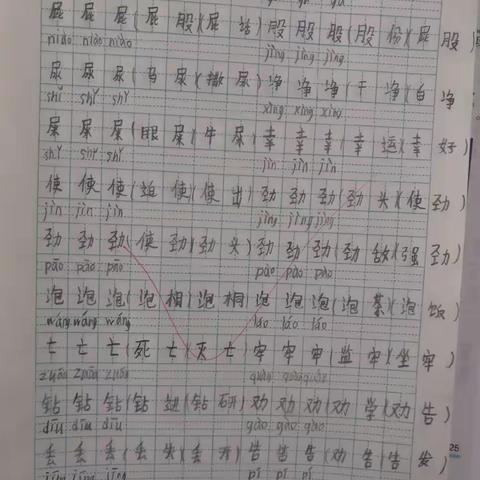 屁 屁 屁(屁 股)(屁 话)股 股 股(股 份)(屁 股)
niào niào niào jìng jìng jìng
尿 尿 尿(鸟 尿)(撒 尿)净 净 净(干 净)(白 净)
shǐ shǐ shǐ xìng xìng xìng
屎 屎 屎(眼 屎)(牛 屎)幸 幸 幸(幸 运)(幸 好)
shǐ shǐ shǐ jìn jìn jìn
使 使 使(迫 使)(使 出)劲 劲 劲(劲 头)(使 劲)
jìn jìn jìn jìng jìng jìng
劲 劲 劲(使 劲)(劲 头)劲 劲 劲(劲 敌)(强 劲)
pāo pāo pāo pào pào pào
泡 泡 泡(泡 桐)(泡 桐)泡 泡 泡(泡 茶)(泡 饭)
wáng wáng wáng láo láo láo
亡 亡 亡(死 亡)(灭 亡)牢 牢 牢(监 牢)(坐 牢)
zuān zuān zuān quàn quàn quàn
钻 钻 钻(钻 )(钻 研)劝 劝 劝(劝 学)(劝 告)
diū diū diū gào gào gào
丢 丢 丢(丢 失)(丢 开)告 告 告(劝 告)(告 发)
25